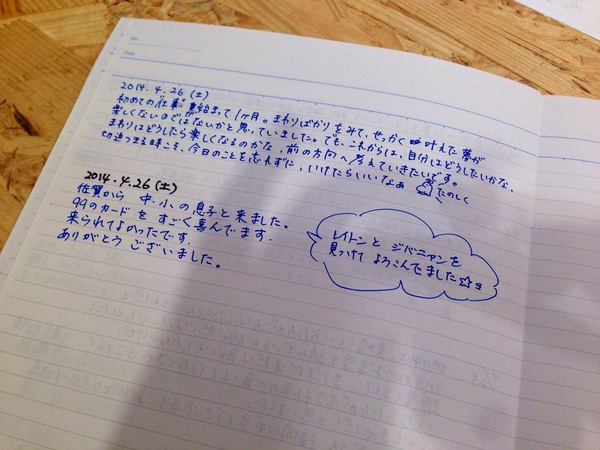 No.
Date
2014.4.26(土)
初めての仕事が始まって1ヶ月。まわりばかりをみて、せっかく叶えた夢が
楽しくないのではないかと思っていました。でも、これからは、自分はどうしたいかな、
まわりはどうしたら楽しくなるのかな、前の方向へ考えていきたいです。
切迫つまる時こそ、今日のことを忘れずに、いけたらいいなぁ
たのしく
2014.4.26(土)
佐賀から 中・小の息子と来ました。
99のカードを すごく喜んでます.
来られてよかったです.
ありがとう ございました。
レイトンと ジバニャンを
見つけて よろこんでました☆ョ